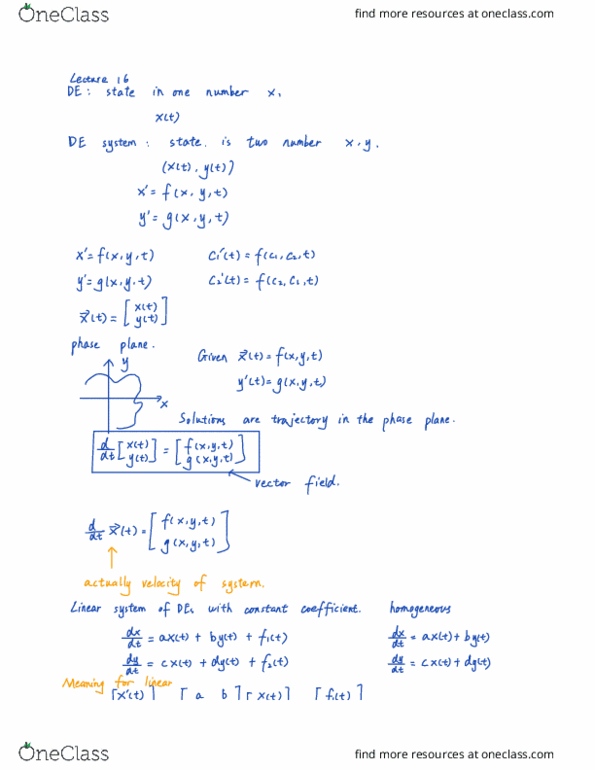 OneClass
find more resources at oneclass.com
Lecture 16
DE: state in one number x,
x(t)
DE system: state. is two number x.y.
(x(t), y(t))
x' = f(x, y, t)
y' = g(x, y, t)
x' = f(x, y, t) C₁'(t) = f(c₁, c₂, t)
y' = g(x, y, t) C₂'(t) = f(c₂, c₁, t)
x⃗(t) = [x(t)
y(t)]
phase plane.
y
Given x⃗(t) = f(x, y, t)
y'(t) = g(x, y, t)
x
Solutions are trajectory in the phase plane.
d/dt [x(t) y(t)] = [f(x, y, t) g(x, y, t)]
vector field.
d/dt x⃗(t) = [f(x, y, t)
g(x, y, t)]
actually velocity of system.
Linear system of DEs with constant coefficient. homogeneous
dx/dt = ax(t) + by(t) + f₁(t) dx/dt = ax(t) + by(t)
dy/dt = cx(t) + dy(t) + f₂(t) dy/dt = cx(t) + dy(t)
Meaning for linear
[x'(t)] [a b][x(t)] [f₁(t)]
OneClass
find more resources at oneclass.com